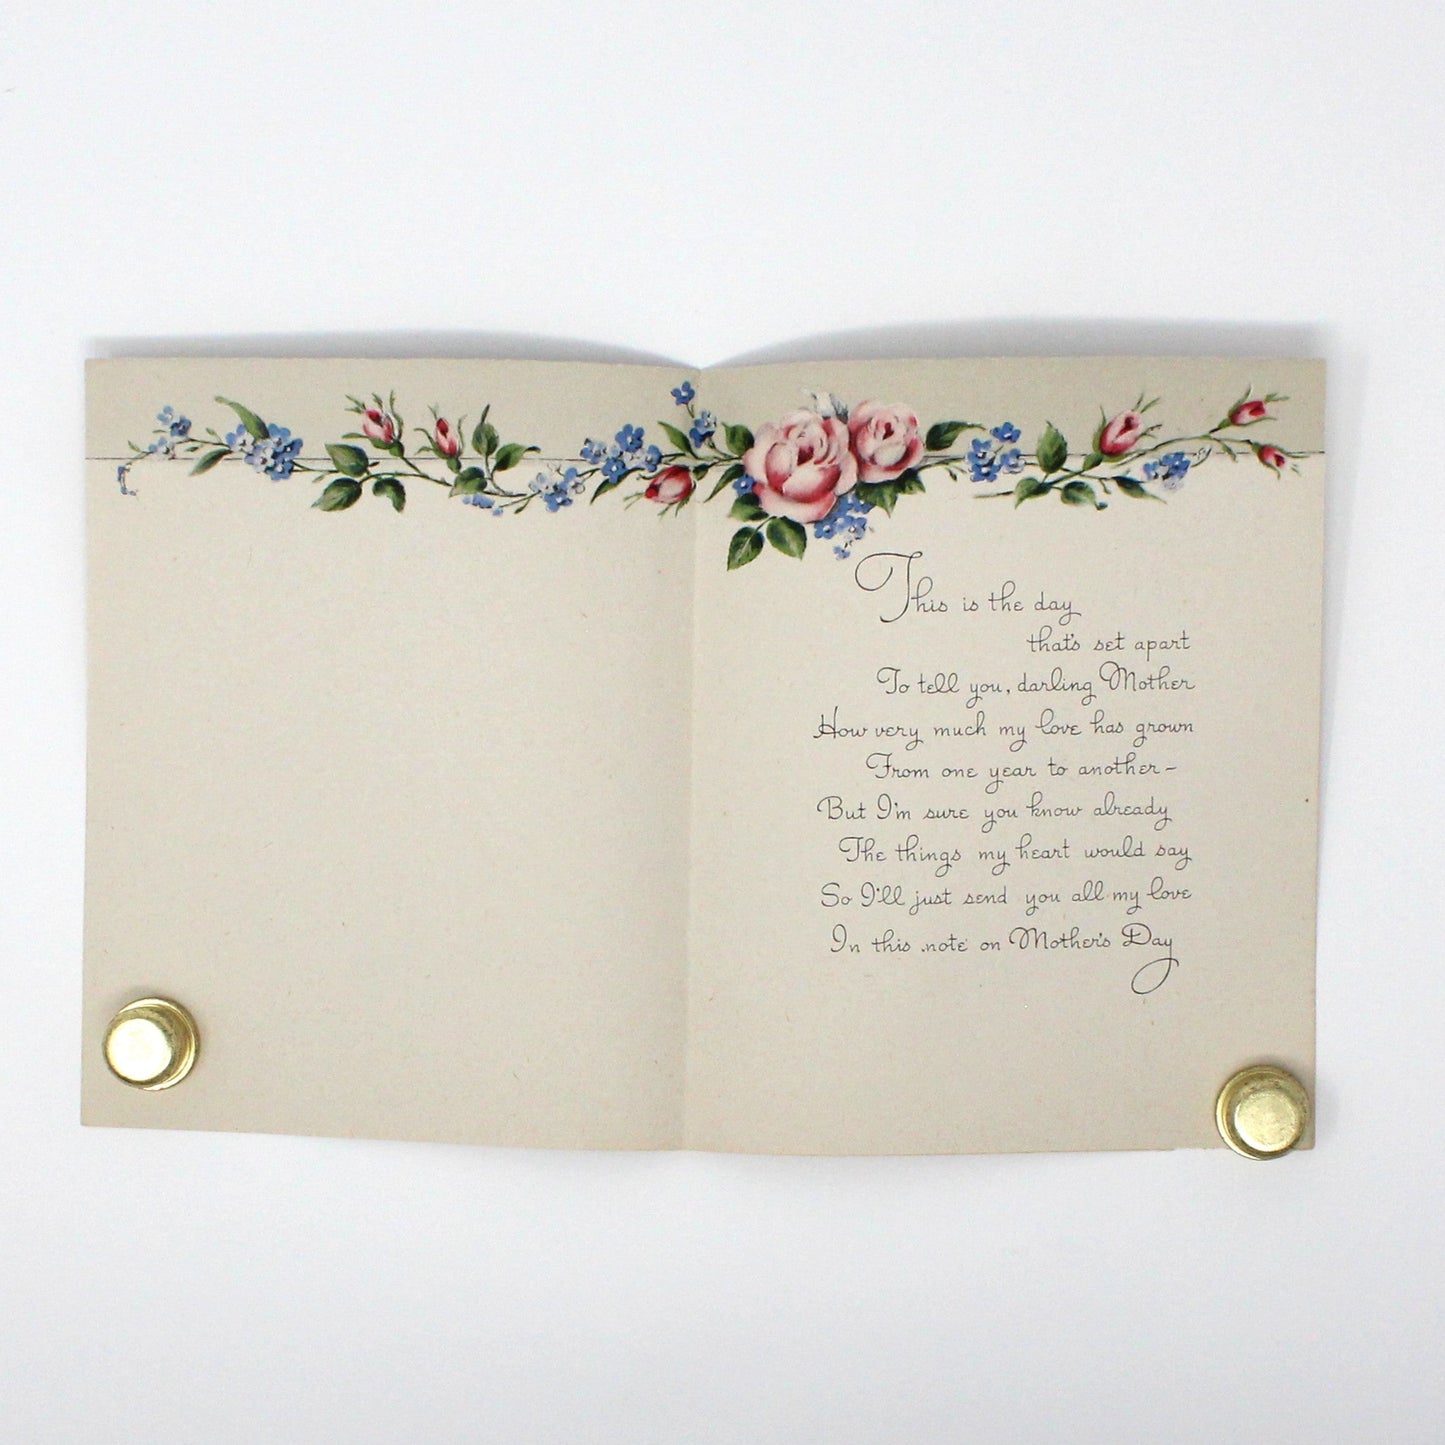 This is the day
that's set apart
To tell you, darling Mother
How very much my love has grown
From one year to another–
But I'm sure you know already
The things my heart would say
So I'll just send you all my love
In this note on Mother's Day